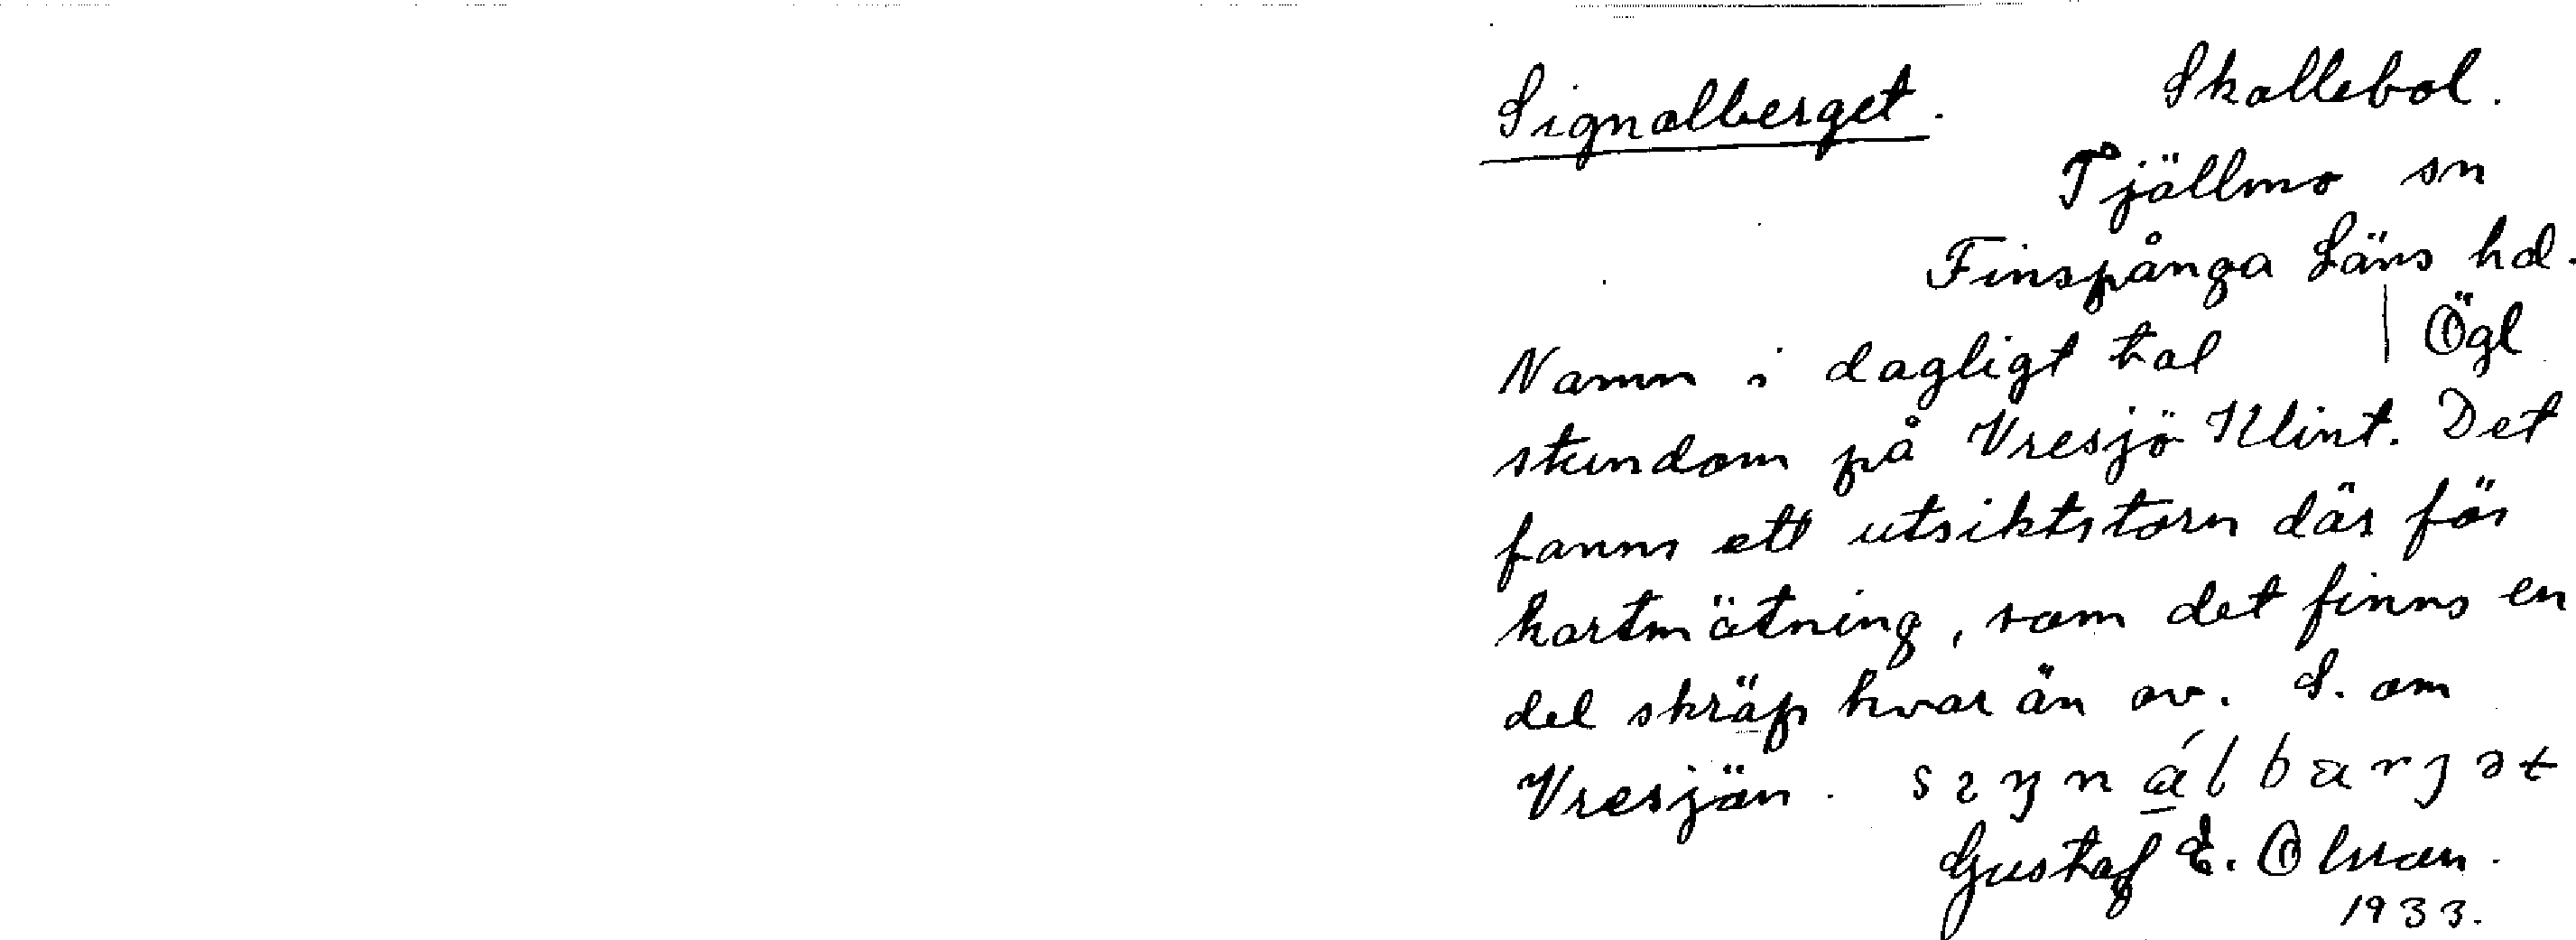 Signalberget. Skallebol.
Tjällmo sn
Finspånga Läns hd.
Namn i dagligt tal | Ögl
stundom på Vresjö Klint. Det
fanns ett utsiktstorn där för
kartmätning, som det finns en
del skräp kvar än av. S. om
Vresjön.
Gustaf E. Olsson.
1933.